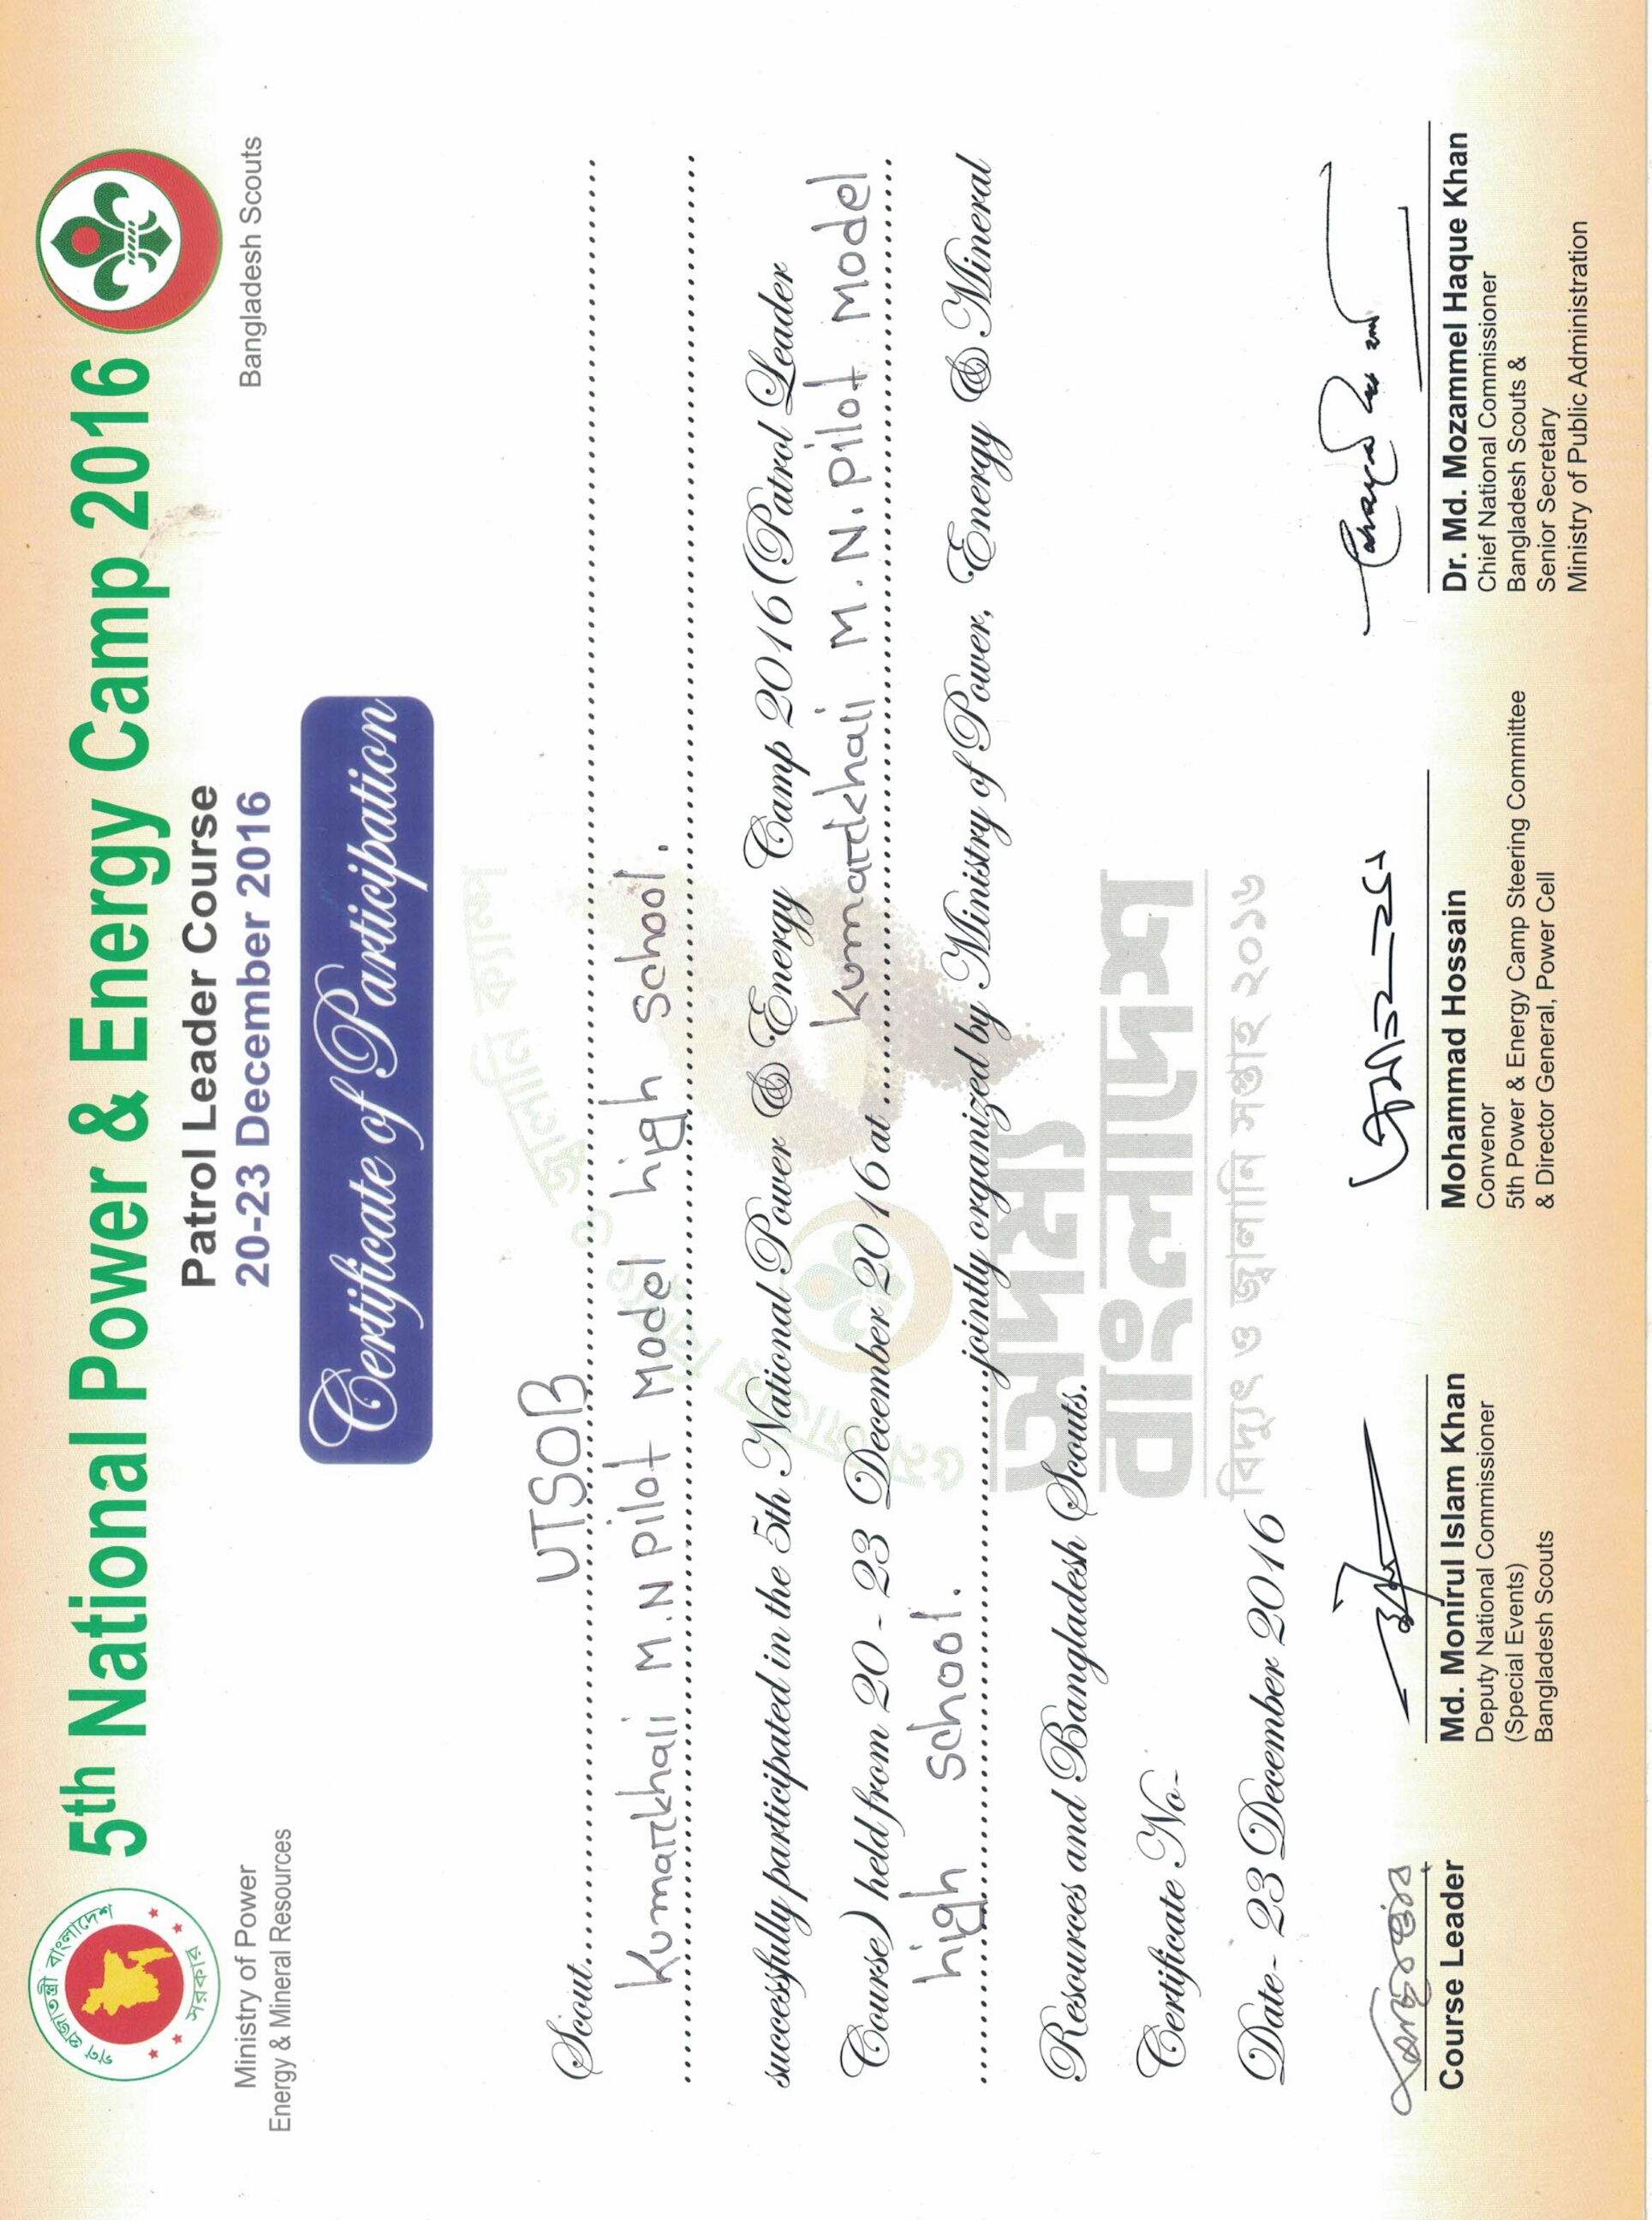 গণ প্রজাতন্ত্রী বাংলাদেশ
সরকার
Ministry of Power
Energy & Mineral Resources
5th National Power & Energy Camp 2016
Patrol Leader Course
20-23 December 2016
Bangladesh Scouts
Certificate of Participation
Scout UTSOB
Kumarkhali M.N Pilot Model high school.
successfully participated in the 5th National Power & Energy Camp 2016 (Patrol Leader
Course) held from 20 - 23 December 2016 at Kumarkhali M.N. Pilot Model
high school. jointly organized by Ministry of Power, Energy & Mineral
Resources and Bangladesh Scouts.
Certificate No-
Date- 23 December 2016
৫ম জাতীয় বিদ্যুৎ ও জ্বালানি ক্যাম্প
অদম্য
বাংলাদেশ
বিদ্যুৎ ও জ্বালানি সপ্তাহ ২০১৬
Course Leader
Md. Monirul Islam Khan
Deputy National Commissioner
(Special Events)
Bangladesh Scouts
Mohammad Hossain
Convenor
5th Power & Energy Camp Steering Committee
& Director General, Power Cell
Dr. Md. Mozammel Haque Khan
Chief National Commissioner
Bangladesh Scouts &
Senior Secretary
Ministry of Public Administration